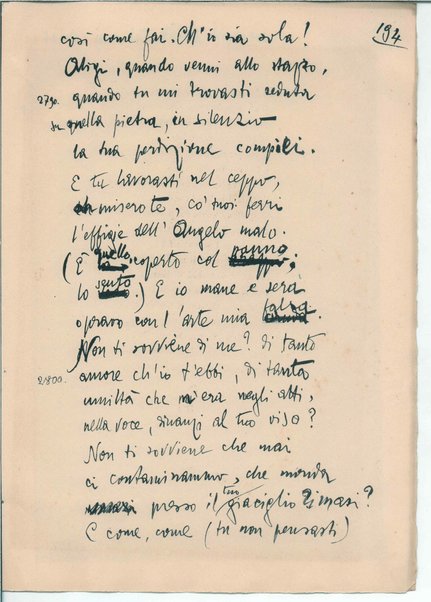 194
così come fai. Ch'io sia sola!
Aligi, quando venni allo stazzo,
2790. quando tu mi trovasti seduta
su quella pietra, in silenzio
la tua perdizione compiei.
E tu lavorasti nel ceppo,
misero te, co' tuoi ferri
l'effigie dell'Angelo malo.
(È quello coperto col panno;
lo sento.) E io mane e sera
operavo con l'arte mia falsa.
Non ti sovviene di me? di tanto
2800. amore ch'io t'ebbi, di tanta
umiltà che m'era negli atti,
nella voce, dinanzi al tuo viso?
Non ti sovviene che mai
ci contaminammo, che monda
presso il tuo giaciglio rimasi?
E come, come (tu non pensasti)